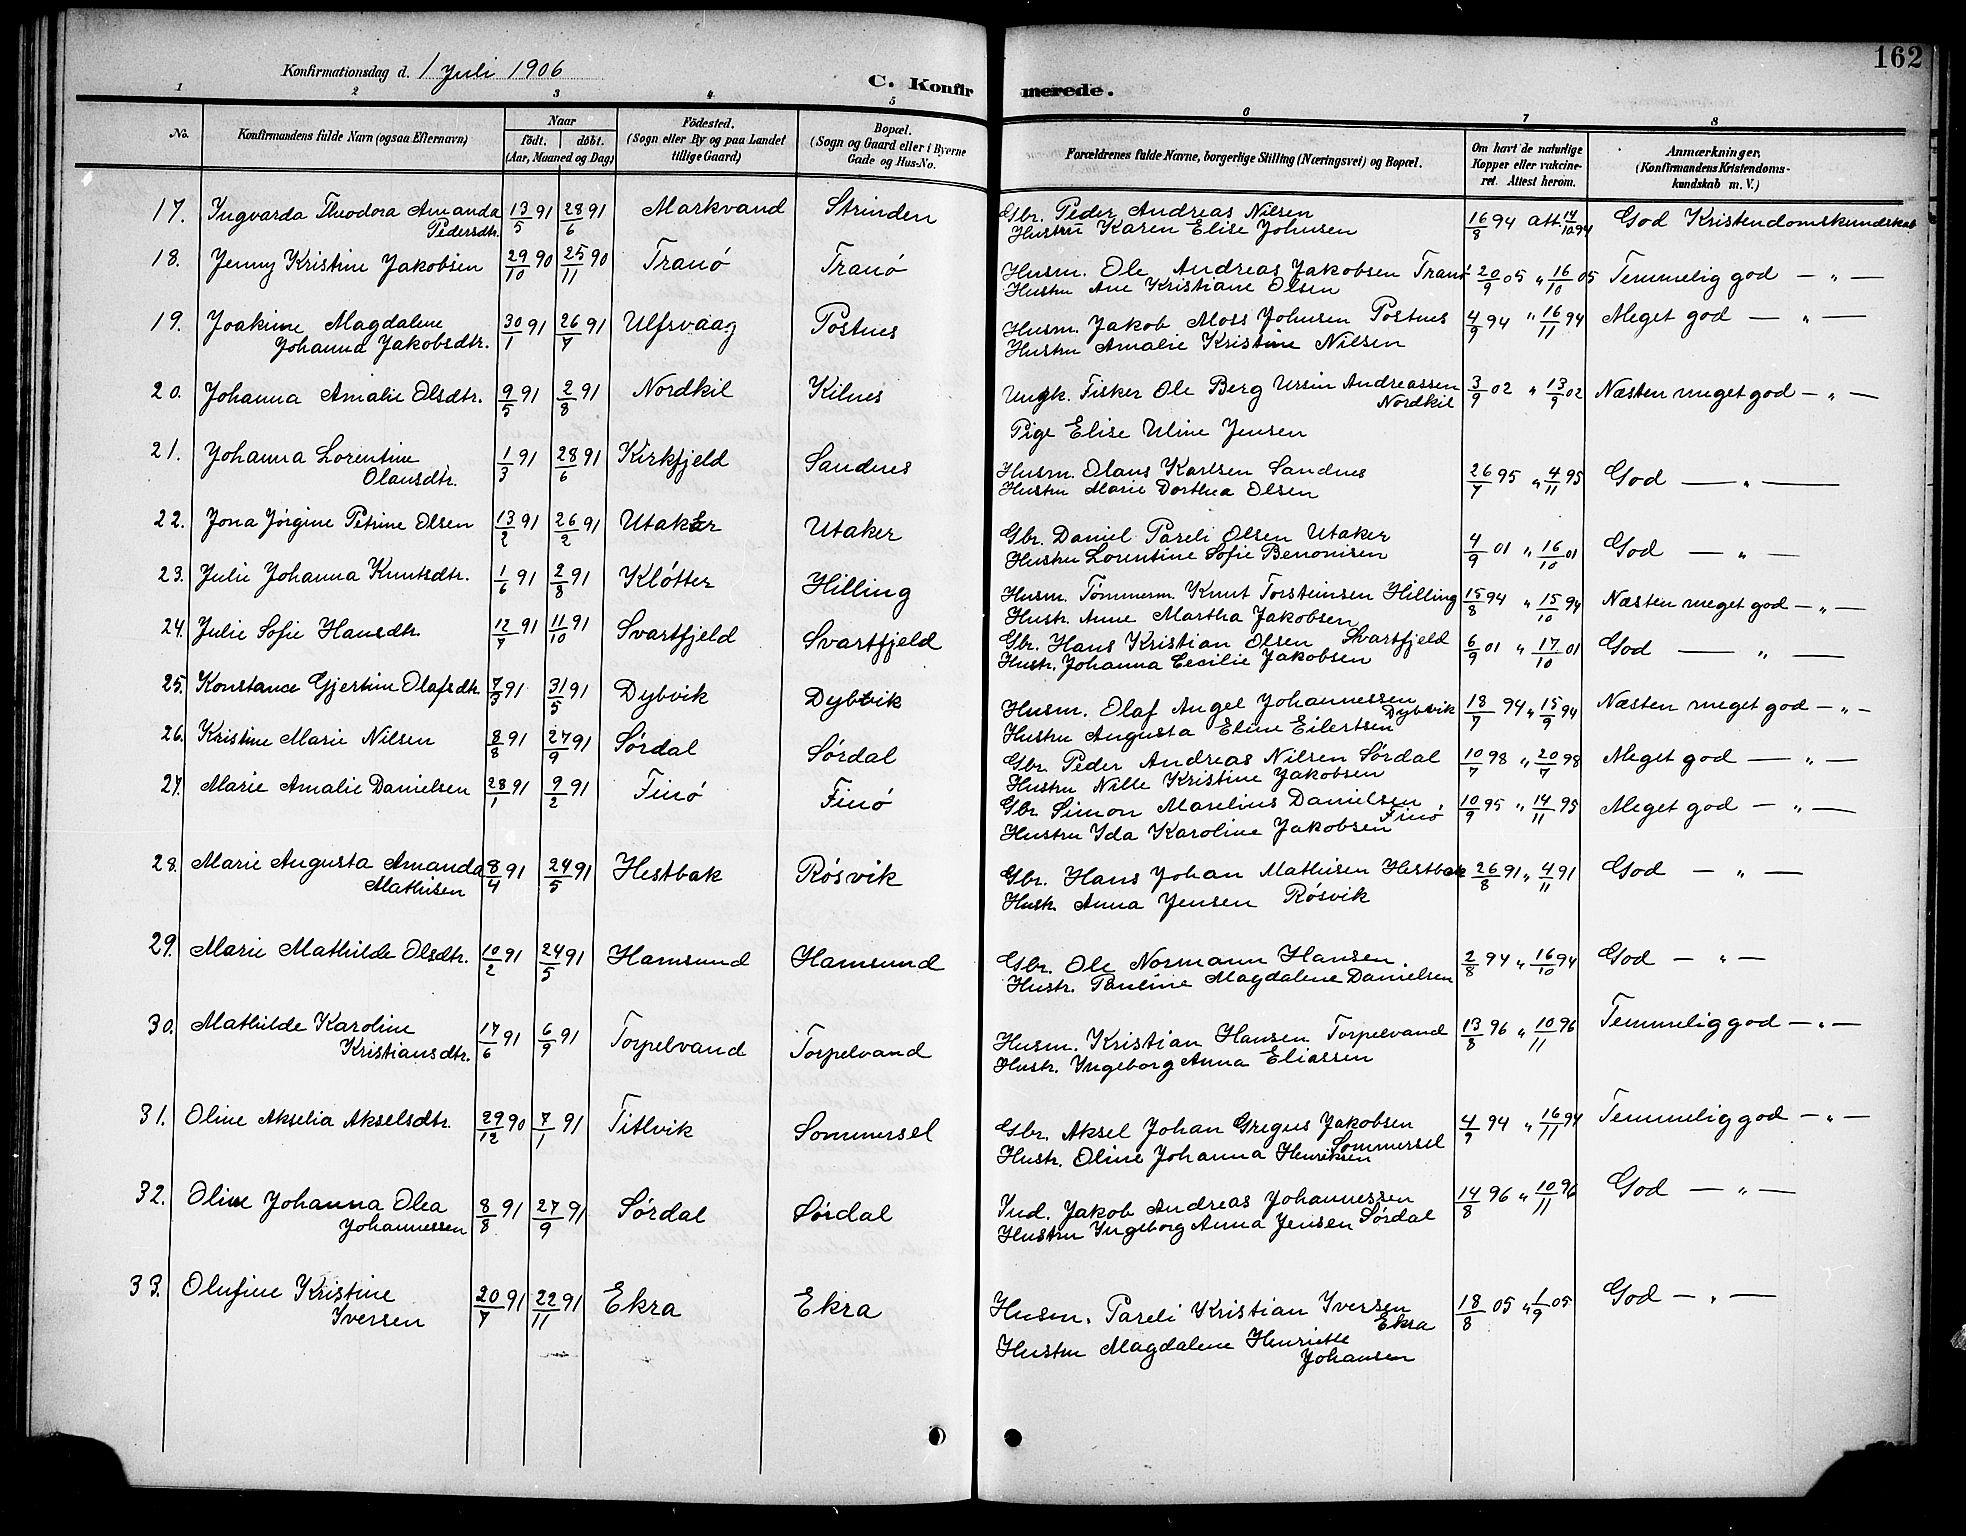 162
Konfirmationsdag d. 1 Juli 1906
C. Konfirmerede.
1 2 3 4 5 6 7 8
No.
Konfirmandens fulde Navn (ogsaa Efternavn)
Naar
födt. döbt.
(Aar, Maaned og Dag)
Födested.
(Sogn eller By og paa Landet
tillige Gaard)
Bopæl.
(Sogn og Gaard eller i Byerne
Gade og Hus-No.
Forældrenes fulde Navne, borgerlige Stilling (Næringsvei) og Bopæl.
Om havt de naturlige
Kopper eller vakcine-
ret. Attest herom.
Anmærkninger.
(Konfirmandens Kristendoms-
kundskab m. V.)
17. Ingvarda Theodora Amanda Pedersdtr. 13/5 91 28/6 91 Markvand Strinden Gbr. Peder Andreas Nilsen
Hustru Karen Elise Johnsen 16/8 94 att. 14/10 94 God Kristendomskundskab
18. Jenny Kristine Jakobsen 29/10 90 25/11 90 Tranö Tranö Husm. Ole Andreas Jakobsen Tranö
Hustru Ane Kristiane Olsen 20/9 05 " 16/10 05 Temmelig god — " —
19. Joakime Magdalene
Johanna Jakobsdtr. 30/1 91 26/7 91 Ulfsvaag Postnes Husm. Jakob Moss Johnsen Postnes
Hustru Amalie Kristine Nilsen 4/9 94 " 16/11 94 Meget god — " —
20. Johanna Amalie Olsdtr. 9/5 91 2/8 91 Nordkil Kilnes Ungk. Fisker Ole Berg Ursin Andreassen
Nordkil
Pige Elise Uline Jensen 3/9 02 " 13/9 02 Næsten meget god — " —
21. Johanna Lorentine
Olausdtr. 1/3 91 28/6 91 Kirkfjeld Sandnes Husm. Olaus Karlsen Sandnes
Hustru Marie Dorthea Olsen 26/7 95 " 4/11 95 God — " —
22. Jona Jörgine Petrine Olsen 13/2 91 26/2 91 Utaker Utaker Gbr. Daniel Pareli Olsen Utaker
Hustru Lorentine Sofie Benonisen 4/9 01 " 16/10 01 God — " —
23. Julie Johanna Knutsdtr. 1/6 91 2/8 91 Klötter Hilling Husm. Tømmerm. Knut Torsteinsen Hilling
Hustr. Anne Martha Jakobsen 15/8 94 " 15/10 94 Næsten meget god — " —
24. Julie Sofie Hansdtr. 12/7 91 11/10 91 Svartfjeld Svartfjeld Gbr. Hans Kristian Olsen Svartfjeld
Hustr. Johanna Cecilie Jakobsen 6/9 01 " 17/10 01 God — " —
25. Konstance Gjertine Olafsdtr. 7/3 91 31/5 91 Dybvik Dybvik Husm. Olaf Angel Johannessen
Dybvik
Hustru Augusta Eline Eilertsen 18/7 94 " 15/9 94 Næsten meget god — " —
26. Kristine Marie Nilsen 8/8 91 27/9 91 Sördal Sördal Gbr. Peder Andreas Nilsen Sördal
Hustru Nille Kristine Jakobsen 10/7 98 " 20/7 98 Meget god — " —
27. Marie Amalie Danielsen 28/1 91 9/2 91 Finö Finö Gbr. Simon Marelius Danielsen
Finö
Hustru Ida Karoline Jakobsen 10/9 95 " 14/11 95 Meget god — " —
28. Marie Augusta Amanda
Mathisen 8/4 91 24/5 91 Hestbak Rösvik Gbr. Hans Johan Mathisen Hestbak
Hustr. Anna Jensen Rösvik 26/8 91 " 4/11 91 God — " —
29. Marie Mathilde Olsdtr. 10/2 91 24/5 91 Hamsund Hamsund Gbr. Ole Normann Hansen.
Hustr. Pauline Magdalene Danielsen 2/8 94 " 16/10 94 God — " —
30. Mathilde Karoline
Kristiansdtr. 17/6 91 6/9 91 Torpelvand Torpelvand Husm. Kristian Hansen Torpelvand
Hustr. Ingeborg Anna Eliassen 13/8 96 " 10/11 96 Temmelig god — " —
31. Oline Akselia Akselsdtr. 29/12 90 7/1 91 Titlvik Sommersel Gbr. Aksel Johan Gregus Jakobsen
Sommersel
Hustr. Oline Johanna Henriksen 4/9 94 " 16/11 94 Temmelig god — " —
32. Oline Johanna Olea
Johannessen 8/8 91 27/9 91 Sördal Sördal Ind. Jakob Andreas Johannessen
Hustru Ingeborg Anna Jensen Sördal 14/8 96 " 10/11 96 God — " —
33. Olufine Kristine
Iversen 20/7 91 22/11 91 Ekra Ekra Husm. Pareli Kristian Iversen
Ekra
Hustru Magdalene Henriette
Johansen 18/8 05 " 1/9 05 God — " —